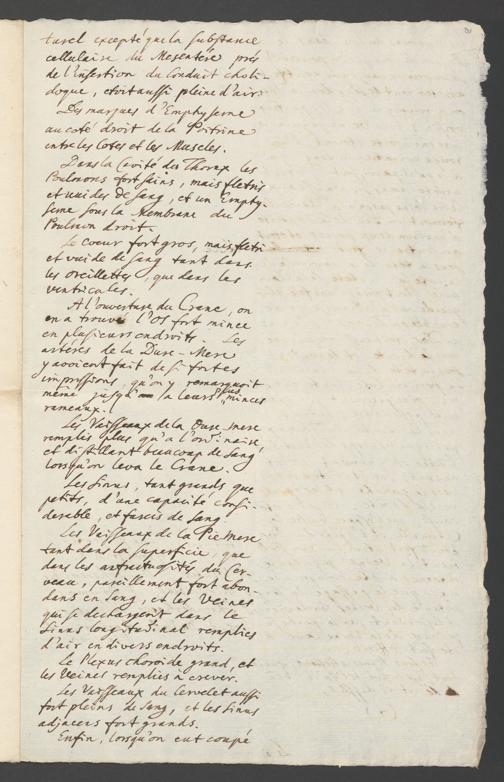 turel excepté que la substance
cellulaire du Mesentére prés
de l'insertion du Conduit choli-
doque, etoit aussi pleine d'air.
Des marques d'Emphyseme
au coté droit de la Poitrine
entre les Cotes et les Muscles.
Dans la Cavité du Thorax les
Poulmons fort sains, mais fletris
et vuides de sang, et un Emphy-
seme sous la Membrane du
Poulmon droit.
Le coeur fort gros, mais fletri
et vuide de sang tant dans
les oreillettes, que dans les
ventricules.
A l'ouverture du Crane, on
en a trouvé l'os fort mince
en plusieurs endroits. Les
arteres de la Dure-Mere
y avoient fait de si fortes
impressions, qu'on y remarquoit
méme jusqu'a leurs plus minces
rameaux.
Les Vaisseaux de la Dure mere
remplis plus qu'a l'ordinaire,
et distillant beaucoup de sang
lorsqu'on leva le Crane.
Les sinus, tant grands que
petits, d'une capacité consi-
derable, et farcis de sang.
Les Vaisseaux de la Pie mere
tant dans la superficie, que
dans les anfractuosités du Cer-
veau, pareillement fort abon-
dans en sang, et les Veines
qui se dechargent dans le
sinus longitudinal remplies
d'air en divers endroits.
Le Plexus choroide grand, et
les Veines remplies à crever.
Les Vaisseaux du Cervelet aussi
fort pleins de sang, et les sinus
adjacens fort grands.
Enfin, lorsqu'on eut coupé